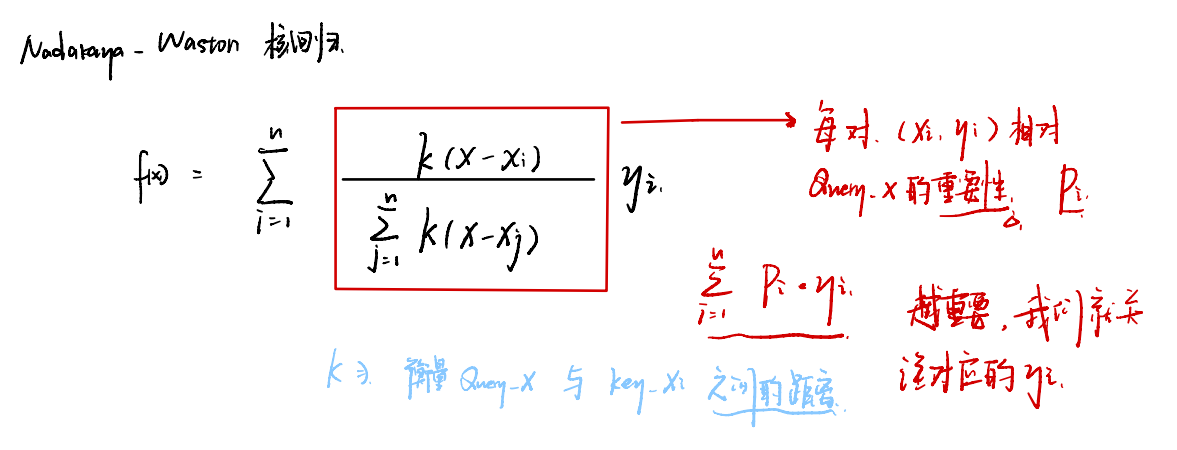 Nadaraya - Waston 核回归.
f(x) = \sum_{i=1}^{n} \frac{k(x-x_i)}{\sum_{j=1}^{n} k(x-x_j)} y_i.
每对. (x_i, y_i) 相对
Query-x 的重要性. P_i.
\sum_{i=1}^{n} P_i · y_i.
越重要, 我们就关
注对应的 y_i.
k ⇒. 衡量 Query-x 与 key-x_i 之间的距离.